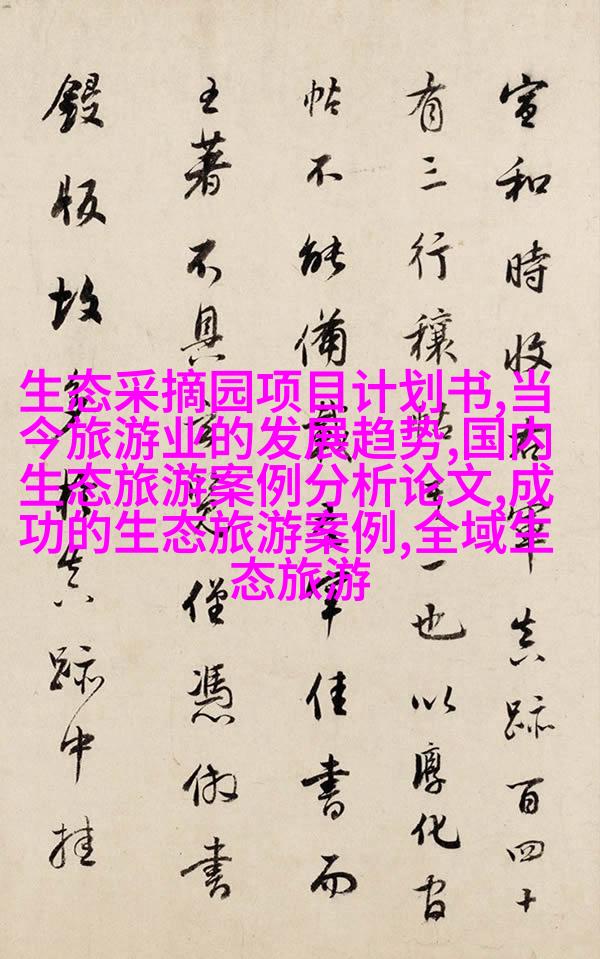 生态采摘园项目计划书,当
今旅游业的发展趋势,国内
生态旅游案例分析论文,成
功的生态旅游案例,全域生
态旅游
宣和時收右軍真跡百四十
有三行穰帖其一也以淳化官
帖不能備載右軍佳書而
王著不具僅憑倣書
鋟版故多真跡中挂